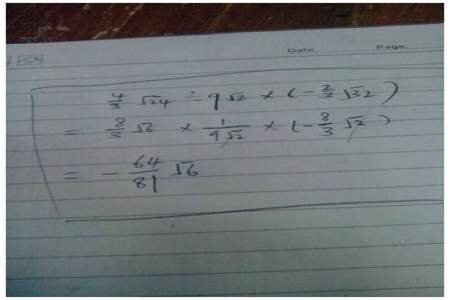 Date. Page.
4/3 √24 ÷ 9√2 × (-2/3 √32)
= 8/3 √6 × 1/9√2 × (-8/3 √2)
= -64/81 √6